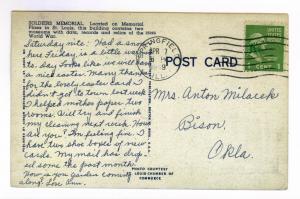 SOLDIERS MEMORIAL. Located on Memorial
Plaza in St. Louis, this building contains two
museums with data, records and relics of the
World War.
Saturday nite. Had a snow
here Friday is a little
to-day looks like we will have
a nice easter. Many thanks
for the lovely easter card I
didn't get to town last week
I helped mother paper two
rooms. Will try and finish
my cleaning next week. How
are you? I'm feeling fine. I
have two shoe boxes of new
cards. My mail has dropped
some the past month.
How is your garden coming
along. Les Ann.
PHOTO COURTESY
ST. LOUIS CHAMBER OF
COMMERCE
SPRINGFIELD
APR 7
ILL.
POST CARD
1 CENT
Mrs. Anton Milacek
Bison,
Okla.